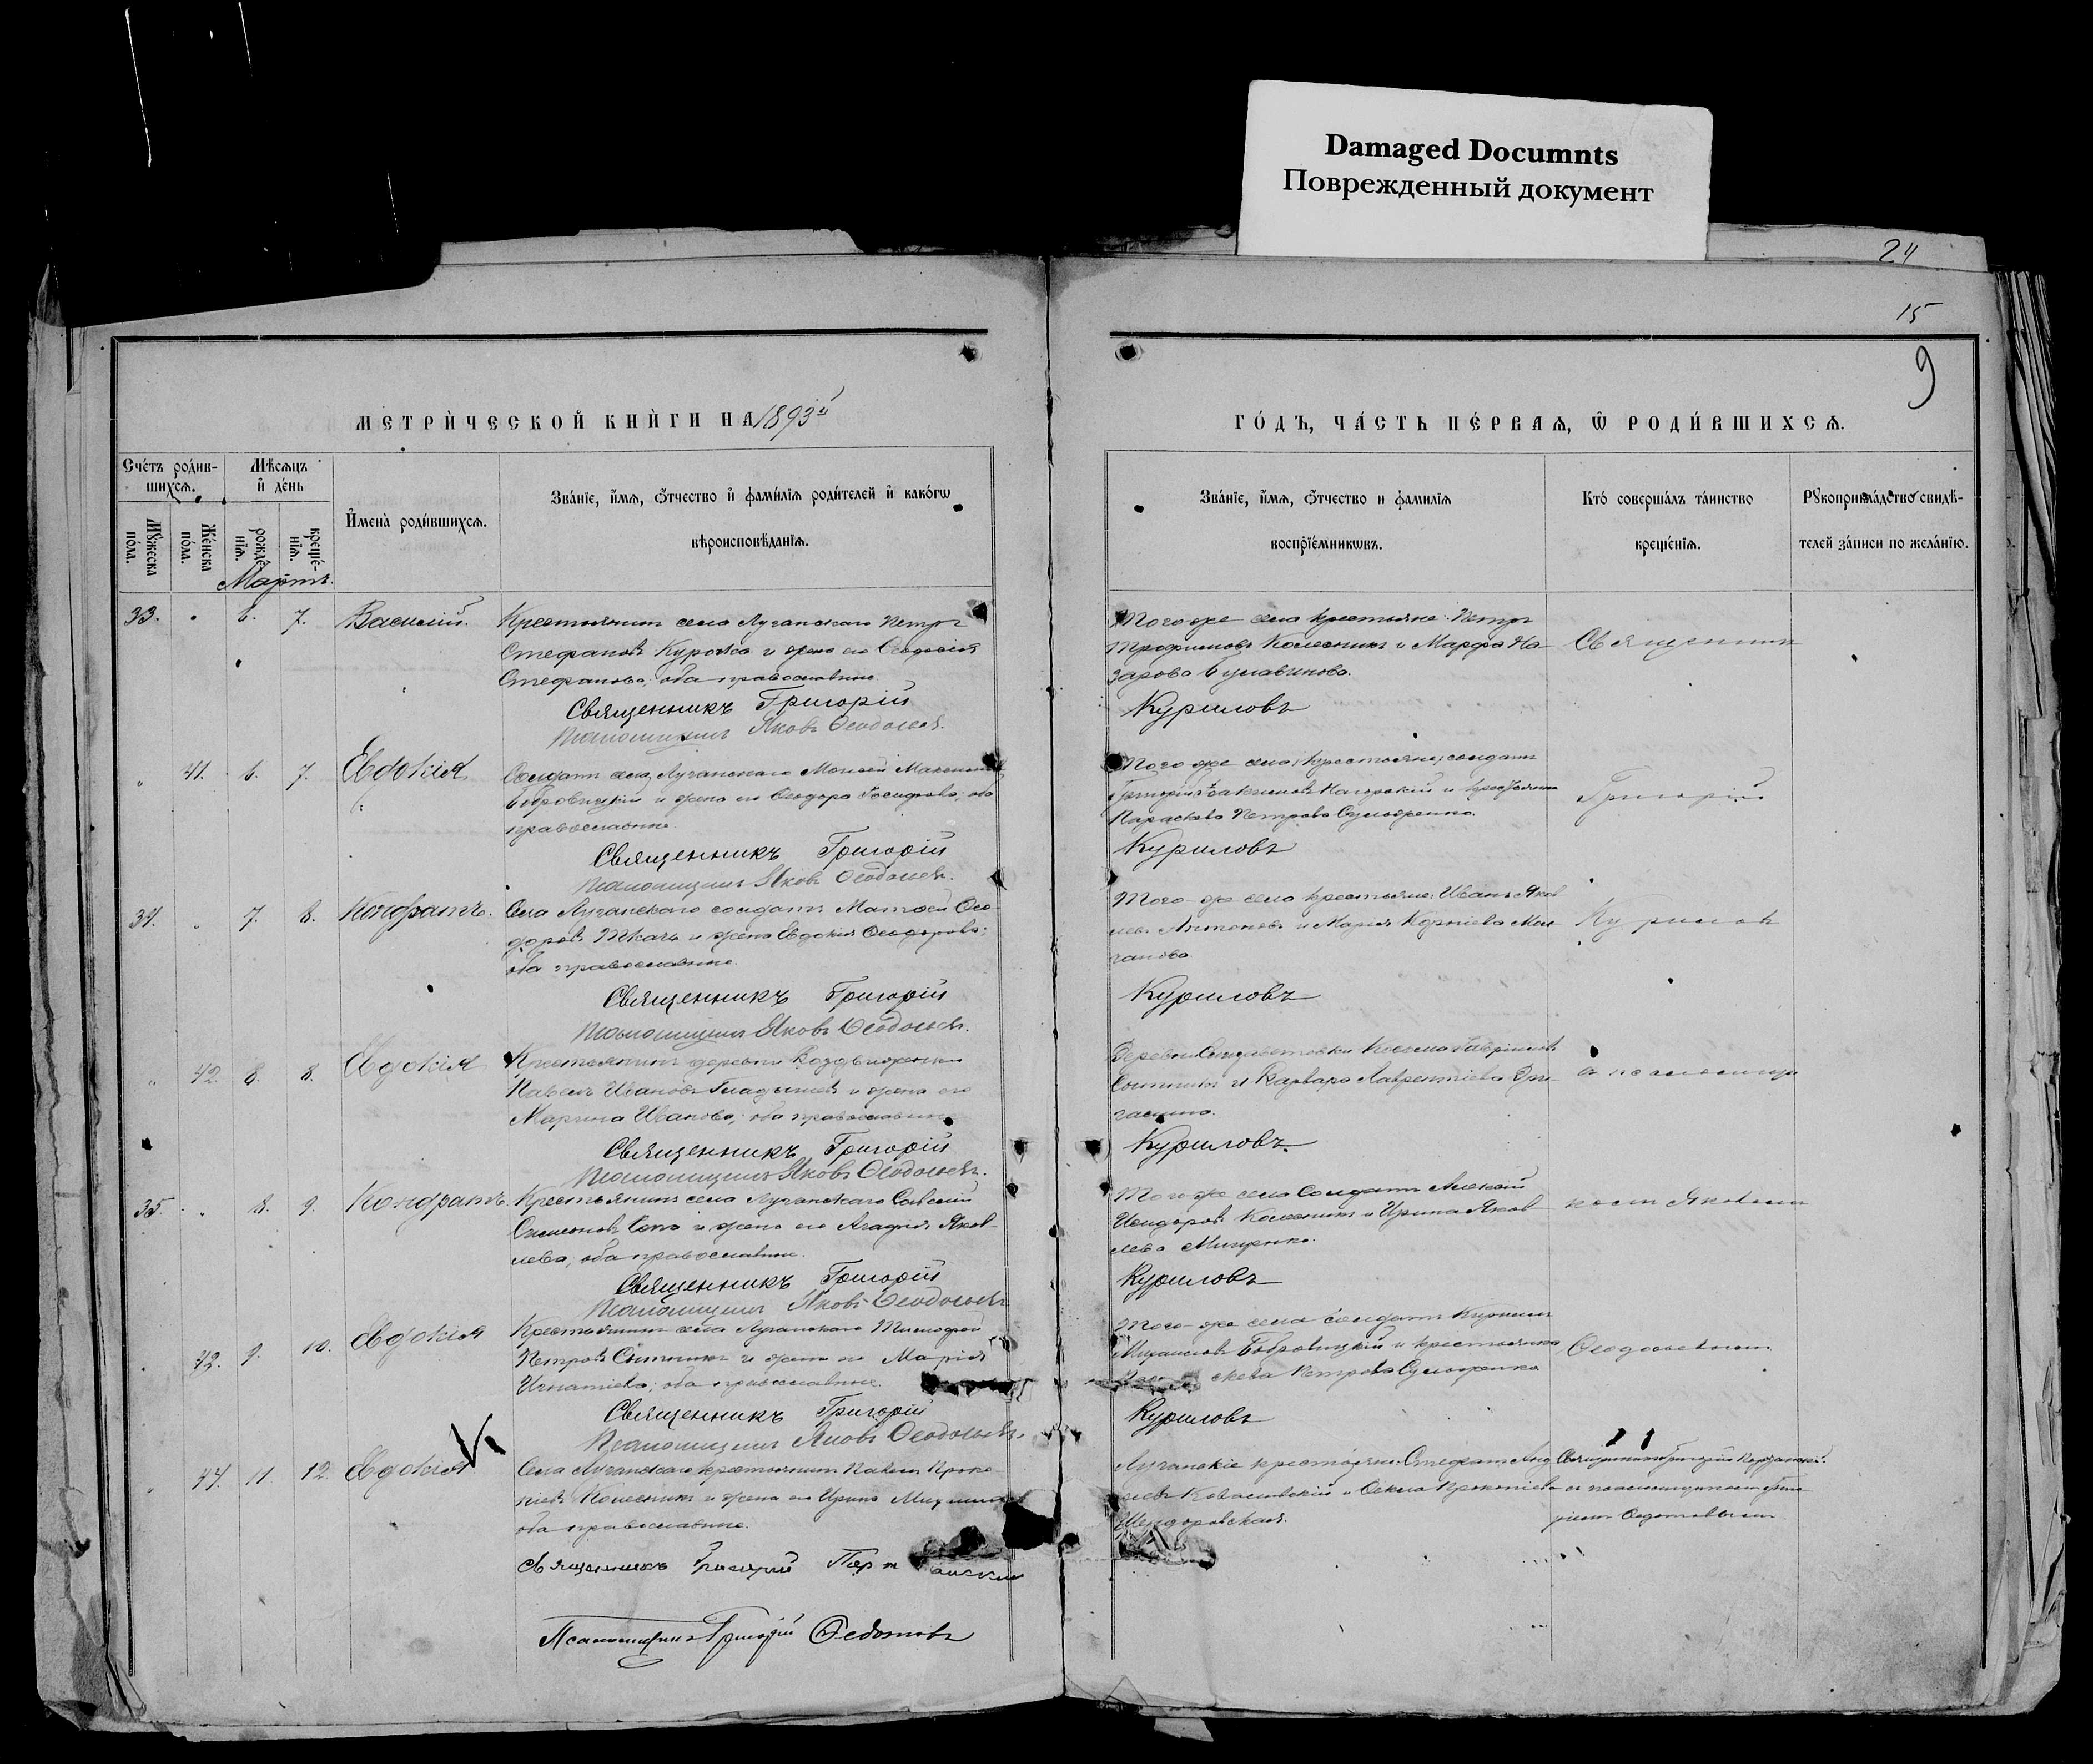 Damaged Documnts
Поврежденный документ
24
15
9
МЕТРИЧЕСКОЙ КНИГИ НА 1893й
ГОДЪ, ЧАСТЬ ПЕРВАЯ, Ѡ РОДИВШИХСЯ.
Счетъ родив-
шихся.
Мѣсяцъ
и день
Мужеска
пола.
Женска
пола.
рожде-
нія.
креще-
нія.
Имена родившихся.
Званіе, имя, отчество и фамилія родителей и какогѡ
вѣроисповѣданія.
Званіе, имя, отчество и фамилія
воспріемникѡвъ.
Кто совершалъ таинство
крещенія.
Рукоприкладство свидѣ-
телей записи по желанію.
Мартъ.
33. 6. 7. Василій. Крестьянинъ села Луганскаго Петръ
Стефановъ и жена его Ѳеодосія
Стефанова, оба православные
Священникъ Григорій
Псаломщикъ Яковъ Ѳеодосьев.
Того же села крестьяне: Петръ
Трофимовъ Колесникъ и Марфа На-
зарова Булавинова.
Священник
Куриловъ
" 41. 6. 7. Евдокія Солдатъ села Луганскаго Моисей
Бобровицкій и жена его Ѳеодора оба
православные
Священникъ Григорій
Псаломщикъ Яковъ Ѳеодосьев.
Того же села крестьяне; солдатъ
Григорій Нагорскій и крестьянка
Параскева Петрова
Григорій
Куриловъ
34. " 7. 8. Кондратъ. Села Луганскаго солдатъ Матѳей Ѳео-
доровъ Ткачъ и жена Евдокія Ѳеодорова;
оба православные.
Священникъ Григорій
Псаломщикъ Яковъ Ѳеодосьев.
Того-же села крестьяне: Иванъ Яков
левъ Антоновъ и Марія Корніева
Курилов
Куриловъ
" 42. 8. 8. Евдокія Крестьянинъ деревни Воздвиженки
Павелъ Ивановъ Гладышевъ и жена его
Марина Иванова; оба православные
Священникъ Григорій
Псаломщикъ Яковъ Ѳеодосьев.
Деревни Косьма Гавриловъ
Сытникъ и Варвара Лаврентіева
с псаломщи
Куриловъ.
35. " 8. 9. Кондратъ. Крестьянинъ села Луганскаго Савелій
Симеоновъ и жена его Агафія Яков-
лева, оба православные.
Священникъ Григорій
Псаломщикъ Яковъ Ѳеодосьев
Того же села Солдатъ Алексей
Исидоровъ Колесникъ и Ирина Яков
лева
ком Яковом
Куриловъ
42. 9. 10. Евдокія Крестьянинъ села Луганскаго Тимофей
Петровъ Сытникъ и жена его Марія
Игнатіева; оба православные.
Священникъ Григорій
Псаломщикъ Яковъ Ѳеодосьев.
Того-же села солдатъ Кириллъ
Михаиловъ Бобровицкій и крестьянка
скева Петрова
Ѳеодосьевым
Куриловъ
44. 11. 12. Евдокія Села Луганскаго крестьянинъ Павелъ Проко-
піевъ Колесникъ и жена его Ирина
оба православные.
Священникъ Григорій
Псаломщикъ Григорій Ѳедотовъ
Луганскіе крестьяне: Стефанъ Анд
Ковалевскій и Ѳекла Прокопіева
Священникъ Григорій
с псаломщикомъ Григо
ріемъ Ѳедотовымъ